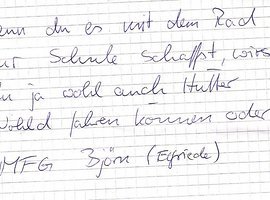 enn du es mit dem Rad
ur Schule schaffst, wirs
u ja wohl auch Hütter
Wohld fahren können oder
MFG Björn (Elfriede)